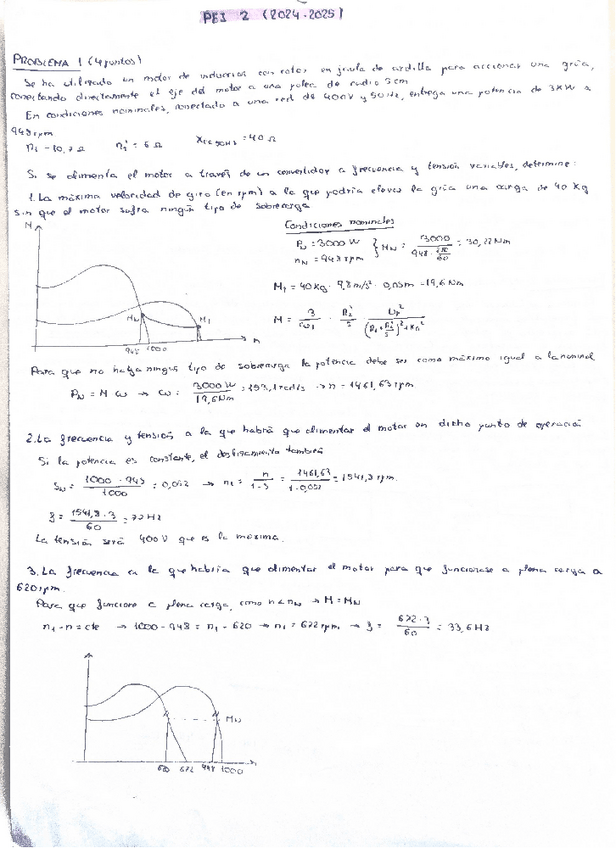 PEI 2 (2024-2025)
PROBLEMA 1 (4 puntos)
Se ha utilizado un motor de inducción con rotor en jaula de ardilla para accionar una grúa,
conectando directamente el eje del motor a una polea de radio 5cm
En condiciones nominales, conectado a una red de 400V y 50Hz, entrega una potencia de 3KW a
948 rpm
R1 = 10,7 Ω R2' = 6 Ω Xcc 50Hz = 40 Ω
Si se alimenta el motor a través de un convertidor a frecuencia y tensión variables, determine:
1. La máxima velocidad de giro (en rpm) a la que podría elevar la grúa una carga de 40 Kg
sin que el motor sufra ningún tipo de sobrecarga
M
Condiciones nominales
PN = 3000 W
nN = 948 rpm } MN = 3000 / (948 · 2π/60) = 30,22 Nm
M1 = 40Kg · 9,8 m/s² · 0,05m = 19,6 Nm
M = 3/ω1 · R2'/s · UF² / ((R1 + R2'/s)² + Xcc²)
MN M1
948 1000 n
Para que no haya ningún tipo de sobrecarga la potencia debe ser como máximo igual a la nominal
PN = M ω → ω = 3000 W / 19,6 Nm = 153,1 rad/s → n = 1461,63 rpm
2. La frecuencia y tensión a la que habrá que alimentar el motor en dicho punto de operación
Si la potencia es constante, el deslizamiento también
SN = (1000 - 948) / 1000 = 0,052 → n1 = n / (1-S) = 1461,63 / (1-0,052) = 1541,8 rpm
f = 1541,8 · 3 / 60 = 77 Hz
La tensión será 400V que es la máxima.
3. La frecuencia en la que habría que alimentar el motor para que funcionase a plena carga a
620 rpm.
Para que funcione a plena carga, como n < nN → M = MN
n1 - n = cte → 1000 - 948 = n1 - 620 → n1 = 672 rpm → f = 672 · 3 / 60 = 33,6 Hz
MN
620 672 948 1000